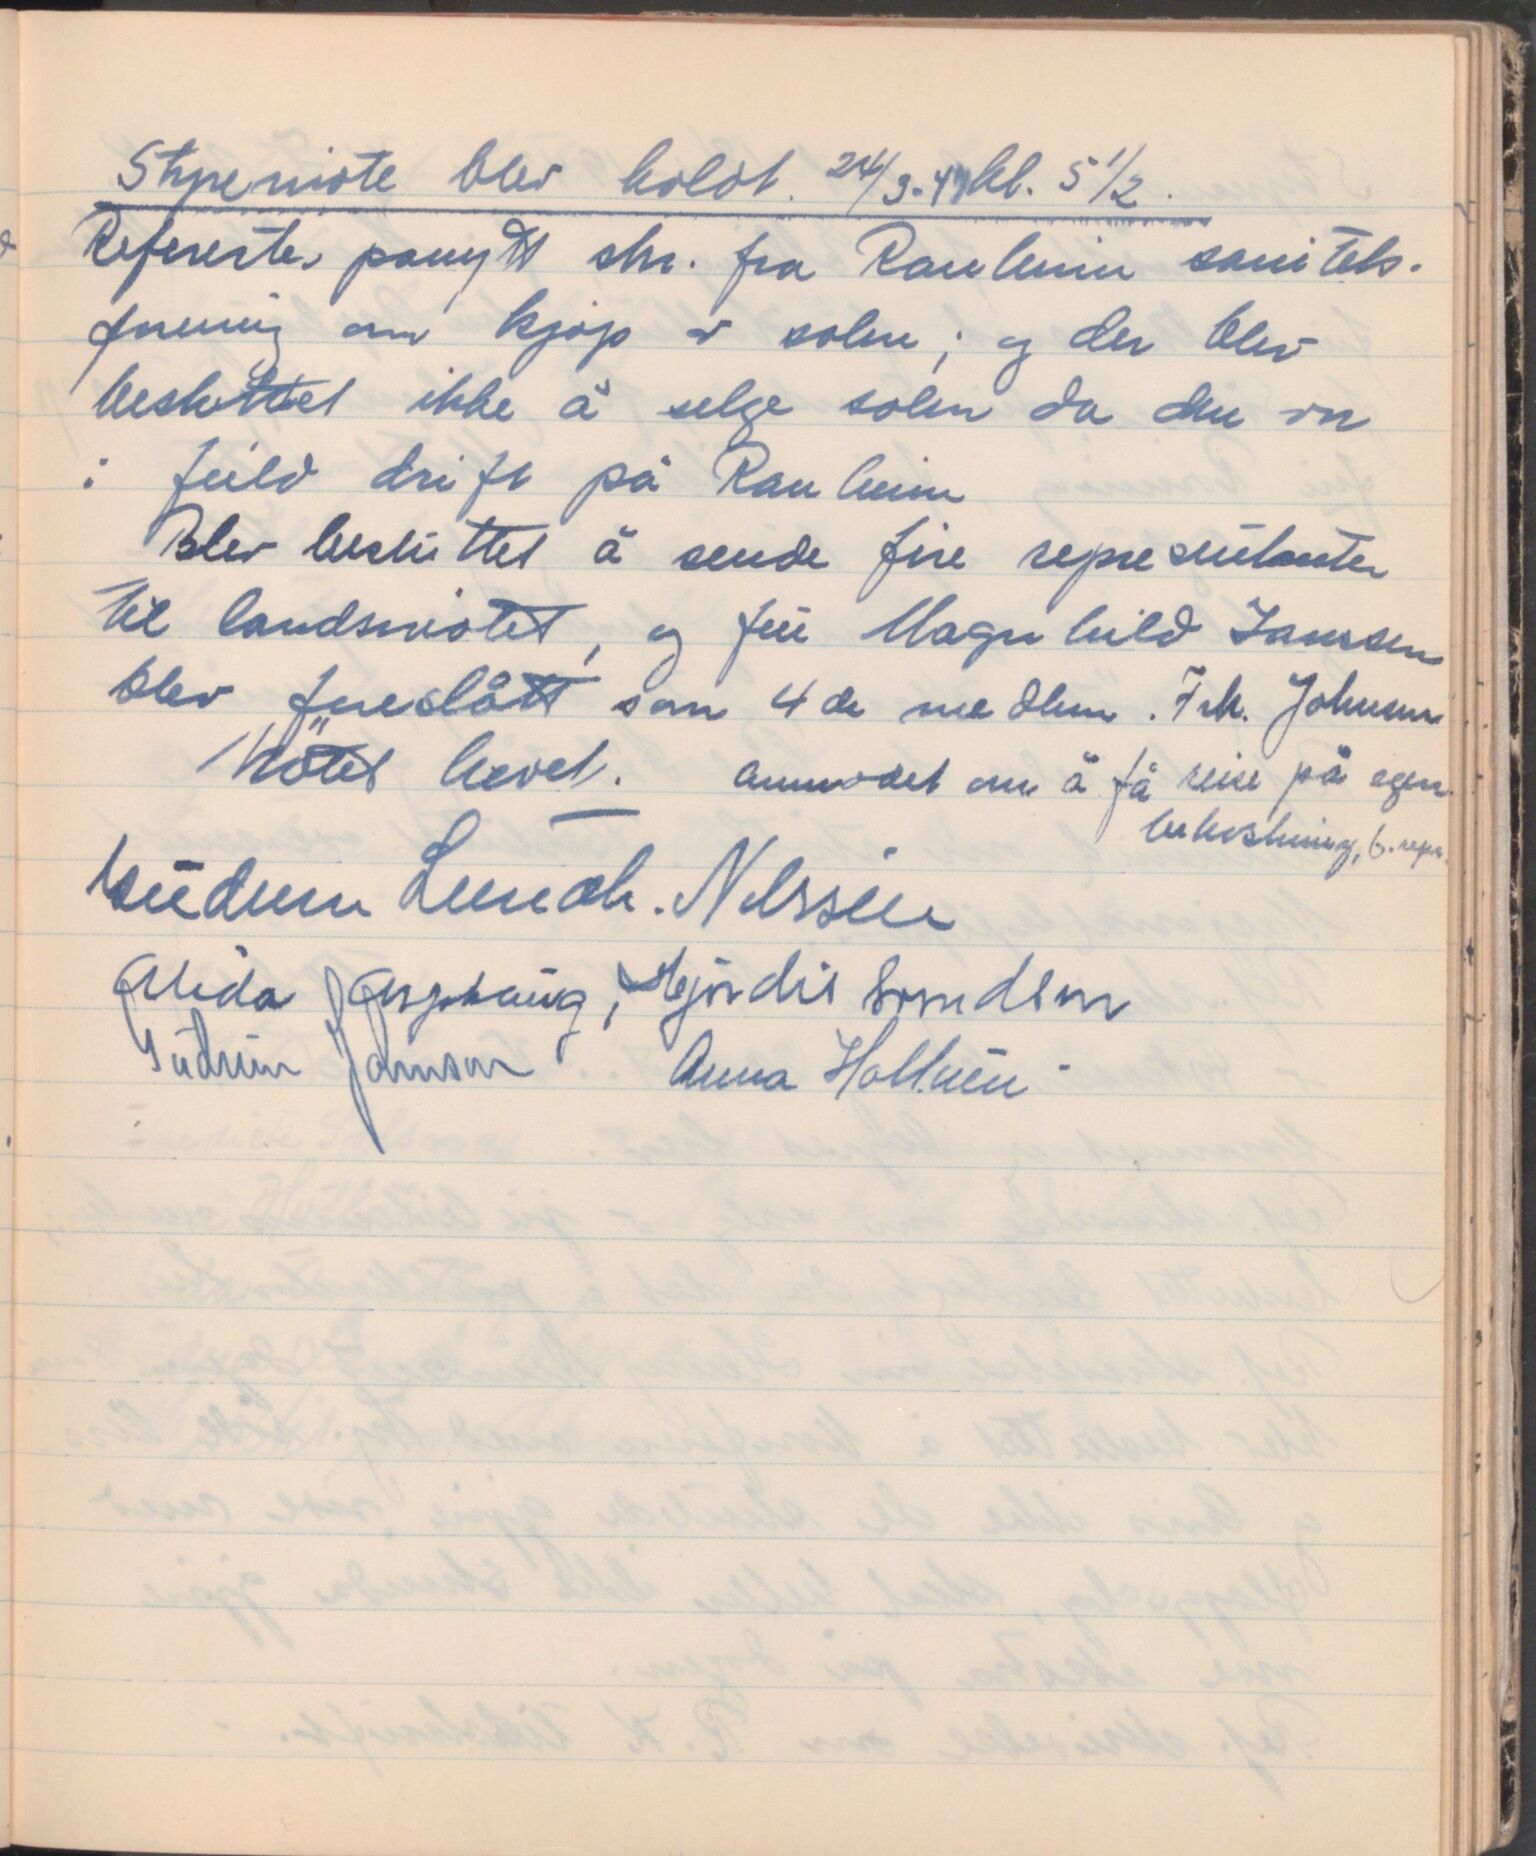 Styremöte blev holdt. 24/3-47 kl. 5 1/2.
Referertes panytt skr. fra Rauheim sanitets.
forening om kjöp av solen; og der blev
besluttet ikke å selge solen da den var
i full drift på Rauheim
Blev besluttet å sende fire representanter
til landsmötet, og fru Magnhild Janssen
blev foreslått som 4de medlem. Frk. Johnsen
Mötet hevet. anmodet om å få reise på egen
bekostning, s. repr.
Gudrun Lunde. Nilssen
Alida Aspehaug, Hjördis Svendsen
Gudrun Johnson Anna Hollum